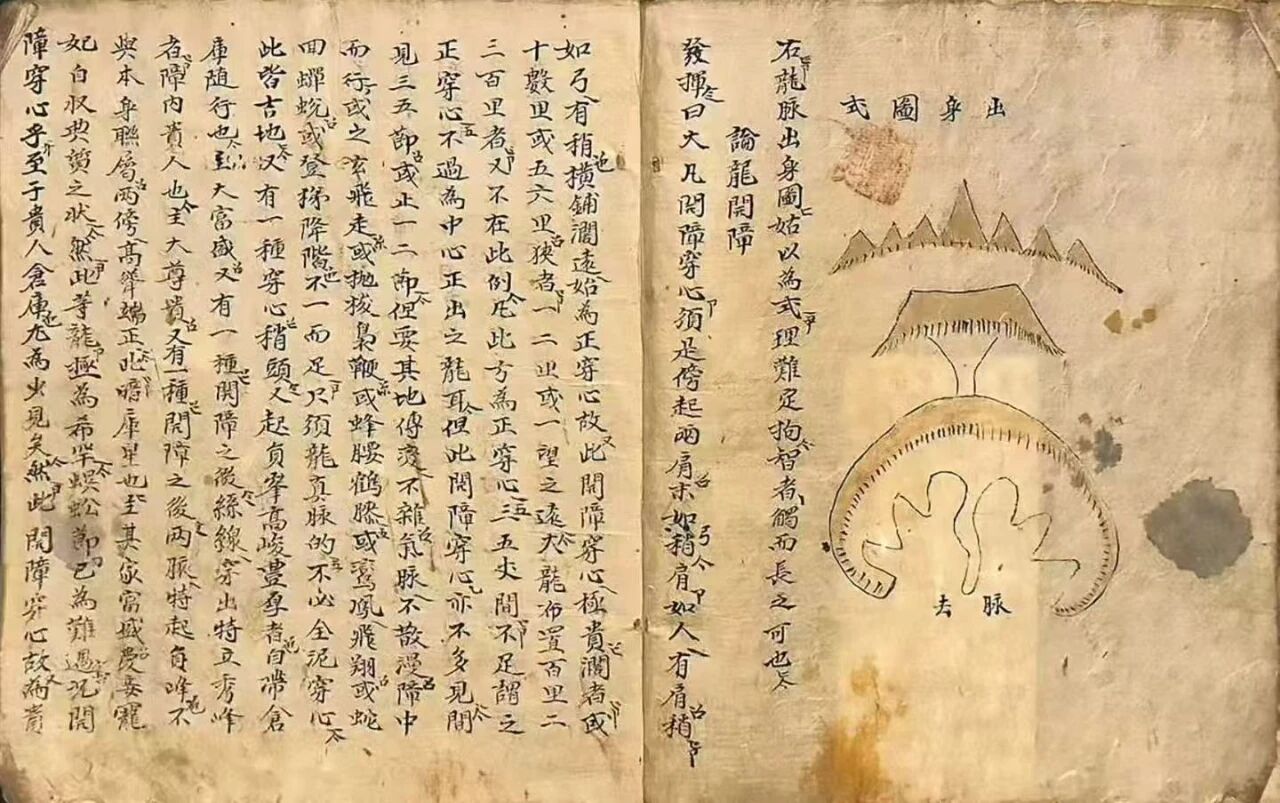 出身圖式
脉去
右龍脉出身圖姑以為式理難定拘智者觸而長之可也
論龍開障
發揮曰大凡開障穿心須是傍起兩肩末如稍肩如人有肩稍
如弓有稍橫鋪濶遠始為正穿心故此開障穿心極貴濶者或
十數里或五六里狹者一二里或一望之遠大龍布置百里二
三百里者又不在此例凡此方為正穿心三五丈間不足謂之
正穿心不過為中心正出之龍耳但此開障穿心亦不多見間
見三五節或止一二節但要其地傳變不雜氣脉不散漫障中
而行或之玄飛走或抛梭鞭或蜂腰鶴膝或鸞鳳飛翔或蛇
田蟬蛻或登梯降階不一而足只須龍真脉的不必全泥穿心
此皆吉地又有一種穿心稍頭又起負峯高峻豊厚者自帶倉
庫随行也主大富盛又有一種開障之後絲線穿出特立秀峰
者障内貴人也主大尊貴又有一種開障之後兩脈特起負峰不
與本身聯属兩傍高聳端正此暗庫星也主其家富盛慶妾寵
妃自収典之状然此等龍極為希罕蜈蚣節已為難遇况開
障穿心乎至于貴人倉庫尤為出見矣然此開障穿心故為貴